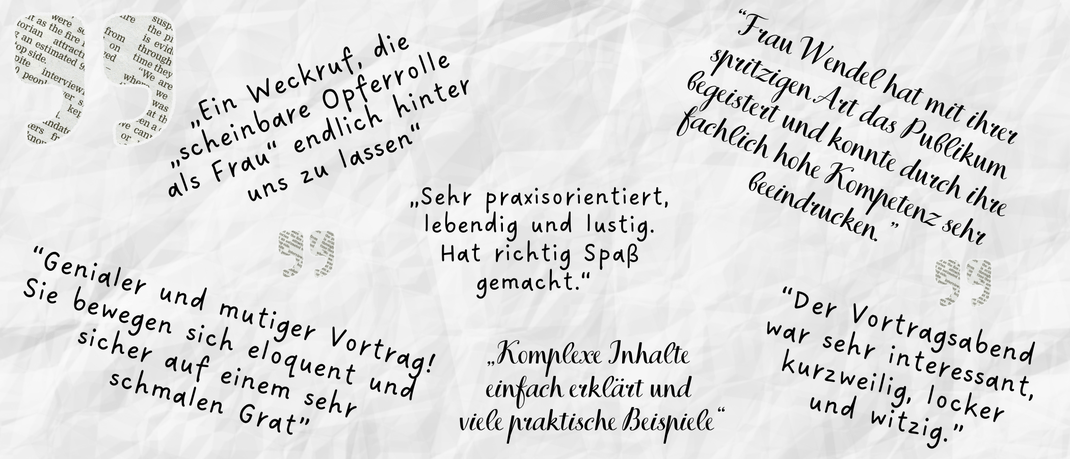 „Ein Weckruf, die
„scheinbare Opferrolle
als Frau“ endlich hinter
uns zu lassen“
“Frau Wendel hat mit ihrer
spritzigen Art das Publikum
begeistert und konnte durch ihre
fachlich hohe Kompetenz sehr
beeindrucken.”
„Sehr praxisorientiert,
lebendig und lustig.
Hat richtig Spaß
gemacht.“
“Genialer und mutiger Vortrag!
Sie bewegen sich eloquent und
sicher auf einem sehr
schmalen Grat”
„Komplexe Inhalte
einfach erklärt und
viele praktische Beispiele“
“Der Vortragsabend
war sehr interessant,
kurzweilig, locker
und witzig.”